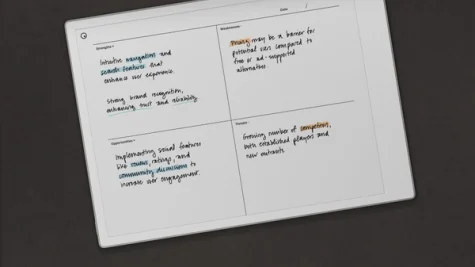 Strengths
Intuitive navigation and
search features that
enhance user experience.
Strong brand recognition,
enhancing trust and reliability.
Weaknesses
Date: /
Pricing may be a barrier for
potential users compared to
free or ad-supported
alternatives.
Opportunities
Implementing social features
like reviews, ratings, and
community discussions to
increase user engagement.
Threats
Growing number of competitors,
both established players and
new entrants